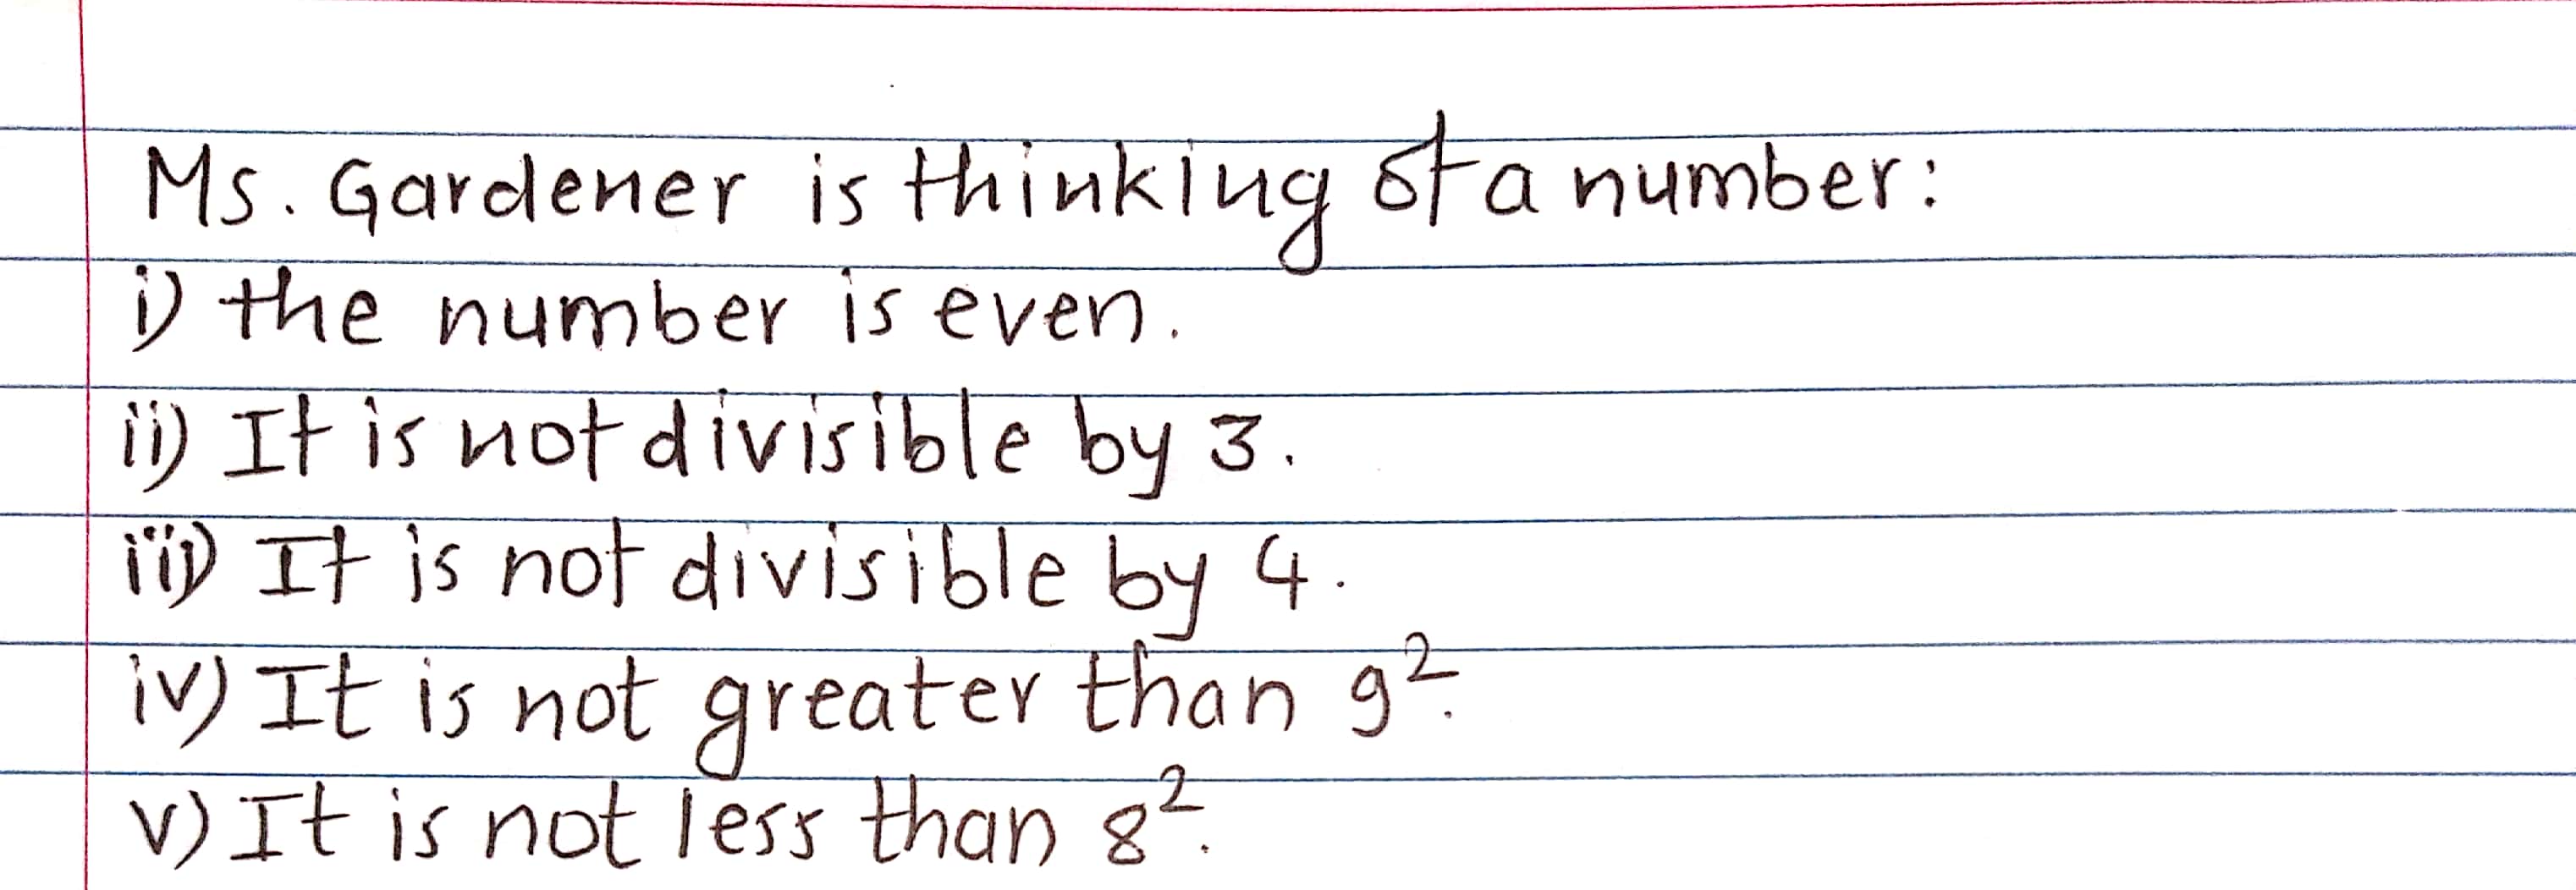 Ms. Gardener is thinking of a number:
i) the number is even.
ii) It is not divisible by 3.
iii) It is not divisible by 4.
iv) It is not greater than 9².
v) It is not less than 8².